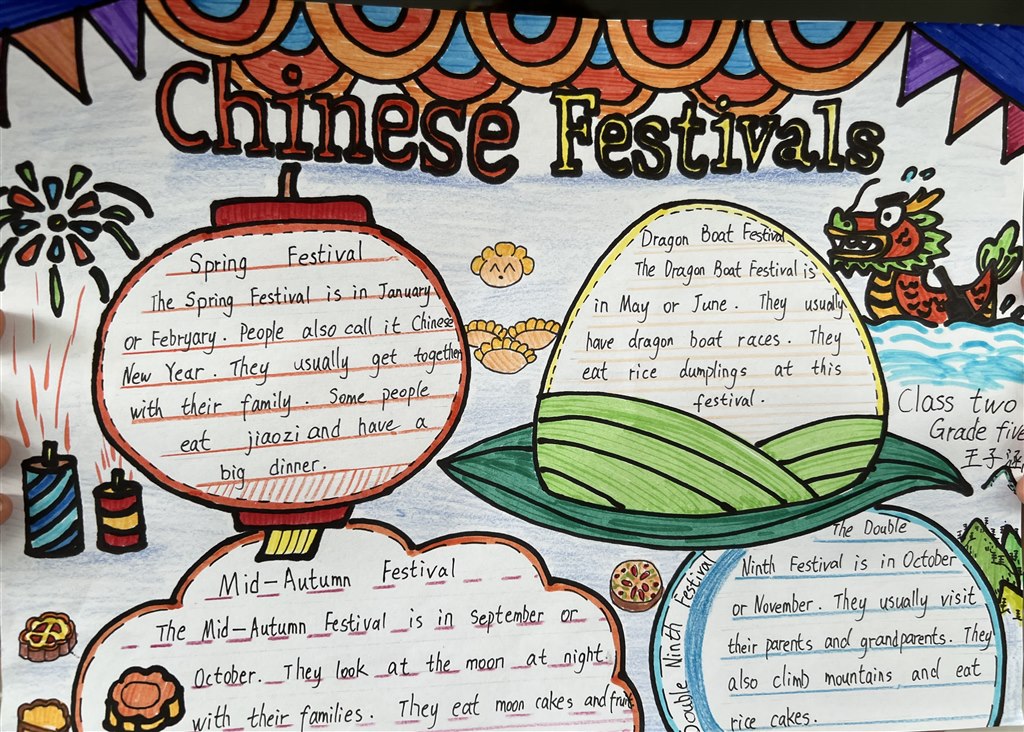 Chinese Festivals
Spring Festival
The Spring Festival is in January
or February. People also call it Chinese
New Year. They usually get together
with their family. Some people
eat jiaozi and have a
big dinner.
Dragon Boat Festival
The Dragon Boat Festival is
in May or June. They usually
have dragon boat races. They
eat rice dumplings at this
festival.
Class two
Grade five
王子涵
Mid-Autumn Festival
The Mid-Autumn Festival is in September or
October. They look at the moon at night.
with their families. They eat moon cakes and fruit
Double Ninth Festival
The Double
Ninth Festival is in October
or November. They usually visit
their parents and grandparents. They
also climb mountains and eat
rice cakes.